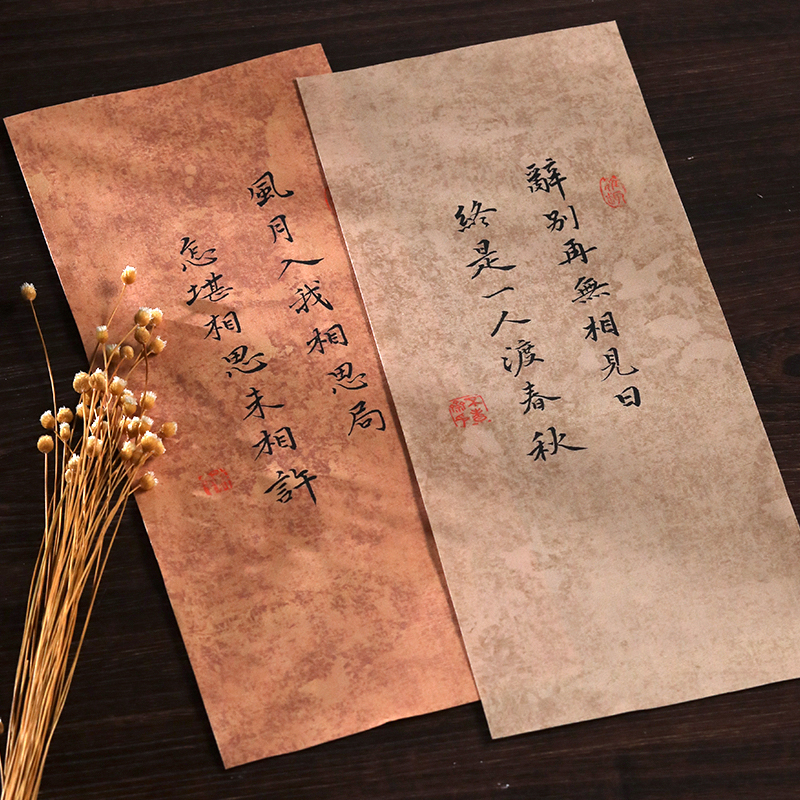 風月入我相思局
怎堪相思未相許
辭別再無相見日
終是一人渡春秋